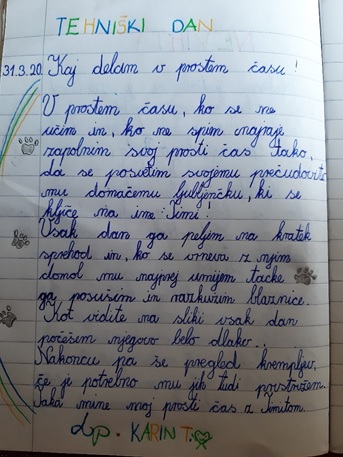 TEHNIŠKI DAN
31.3.20. Kaj delam v prostem času!
V prostem času, ko se ne
učim in, ko ne spim najraje
zapolnim svoj prosti čas tako,
da se posvetim svojemu prečudovite
mu domačemu ljubljenčku, ki se
kliče na ime: Timi.
Vsak dan ga peljem na kratek
sprehod in, ko se vrneva z njim
domov mu najprej umijem tačke
ga posušim in razkužim blaznice.
Kot vidite na sliki vsak dan
počešem njegovo belo dlako..
Nakoncu pa še pregled krempljev,
če je potrebno mu jih tudi postrižem.
Taka mine moj prosti čas z Timitom.
lp. KARIN T.